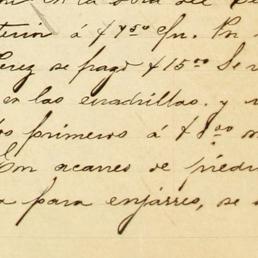 en la
terior á $7.50 c/u. Por
Perez se pagó $15.00 Se
en las cuadrillas. y
os primeros á $8.00
En acarreo de piedra
a para enjarres, se